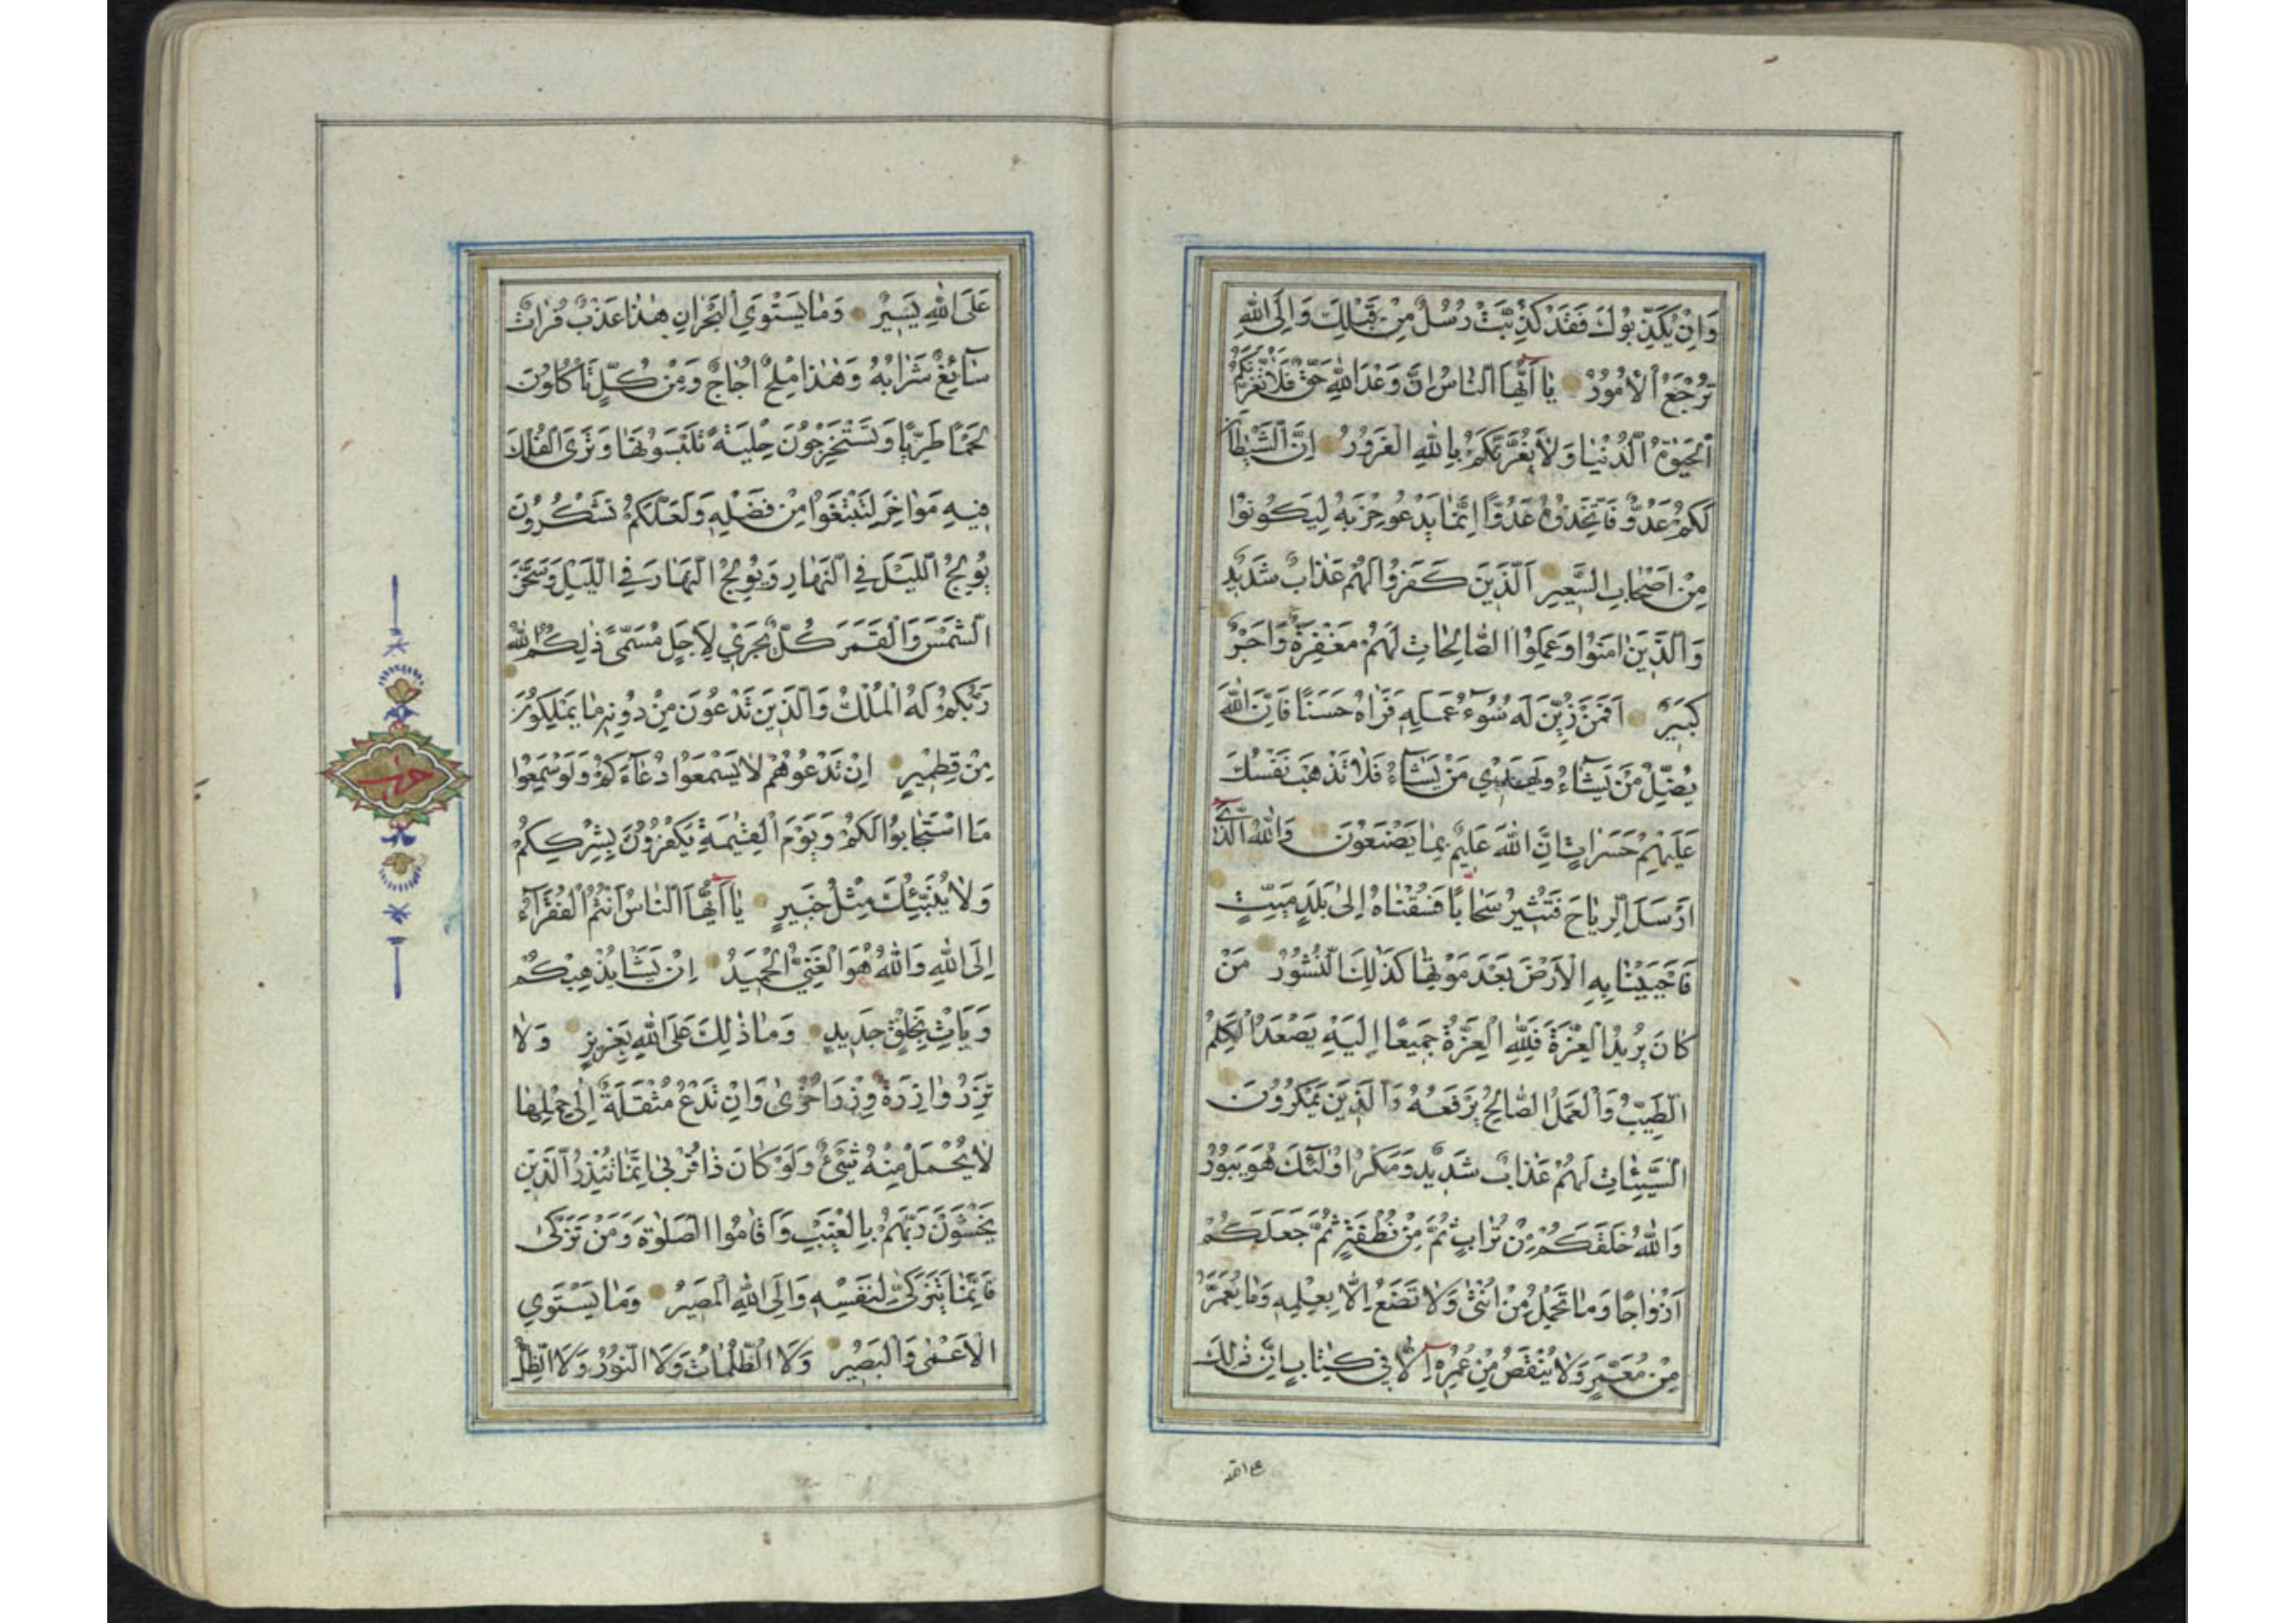 وَاِنْ يُكَذِّبُوكَ فَقَدْ كُذِّبَتْ رُسُلٌ مِنْ قَبْلِكَ وَاِلَى اللّٰهِ
تُرْجَعُ الْاُمُورُ يَا اَيُّهَا النَّاسُ اِنَّ وَعْدَ اللّٰهِ حَقٌّ فَلَا تَغُرَّنَّكُمُ
الْحَيٰوةُ الدُّنْيَا وَلَا يَغُرَّنَّكُمْ بِاللّٰهِ الْغَرُورُ اِنَّ الشَّيْطَانَ
لَكُمْ عَدُوٌّ فَاتَّخِذُوهُ عَدُوًّا اِنَّمَا يَدْعُو حِزْبَهُ لِيَكُونُوا
مِنْ اَصْحَابِ السَّعِيرِ اَلَّذِينَ كَفَرُوا لَهُمْ عَذَابٌ شَدِيدٌ
وَالَّذِينَ اٰمَنُوا وَعَمِلُوا الصَّالِحَاتِ لَهُمْ مَغْفِرَةٌ وَاَجْرٌ
كَبِيرٌ اَفَمَنْ زُيِّنَ لَهُ سُوءُ عَمَلِهِ فَرَاٰهُ حَسَنًا فَاِنَّ اللّٰهَ
يُضِلُّ مَنْ يَشَاءُ وَيَهْدِي مَنْ يَشَاءُ فَلَا تَذْهَبْ نَفْسُكَ
عَلَيْهِمْ حَسَرَاتٍ اِنَّ اللّٰهَ عَلِيمٌ بِمَا يَصْنَعُونَ وَاللّٰهُ الَّذِي
اَرْسَلَ الرِّيَاحَ فَتُثِيرُ سَحَابًا فَسُقْنَاهُ اِلٰى بَلَدٍ مَيِّتٍ
فَاَحْيَيْنَا بِهِ الْاَرْضَ بَعْدَ مَوْتِهَا كَذٰلِكَ النُّشُورُ مَنْ
كَانَ يُرِيدُ الْعِزَّةَ فَلِلّٰهِ الْعِزَّةُ جَمِيعًا اِلَيْهِ يَصْعَدُ الْكَلِمُ
الطَّيِّبُ وَالْعَمَلُ الصَّالِحُ يَرْفَعُهُ وَالَّذِينَ يَمْكُرُونَ
السَّيِّئَاتِ لَهُمْ عَذَابٌ شَدِيدٌ وَمَكْرُ اُولٰئِكَ هُوَ يَبُورُ
وَاللّٰهُ خَلَقَكُمْ مِنْ تُرَابٍ ثُمَّ مِنْ نُطْفَةٍ ثُمَّ جَعَلَكُمْ
اَزْوَاجًا وَمَا تَحْمِلُ مِنْ اُنْثٰى وَلَا تَضَعُ اِلَّا بِعِلْمِهِ وَمَا يُعَمَّرُ
مِنْ مُعَمَّرٍ وَلَا يُنْقَصُ مِنْ عُمُرِهِ اِلَّا فِي كِتَابٍ اِنَّ ذٰلِكَ
على الله
عَلَى اللّٰهِ يَسِيرٌ وَمَا يَسْتَوِي الْبَحْرَانِ هٰذَا عَذْبٌ فُرَاتٌ
سَائِغٌ شَرَابُهُ وَهٰذَا مِلْحٌ اُجَاجٌ وَمِنْ كُلٍّ تَأْكُلُونَ
لَحْمًا طَرِيًّا وَتَسْتَخْرِجُونَ حِلْيَةً تَلْبَسُونَهَا وَتَرَى الْفُلْكَ
فِيهِ مَوَاخِرَ لِتَبْتَغُوا مِنْ فَضْلِهِ وَلَعَلَّكُمْ تَشْكُرُونَ
يُولِجُ اللَّيْلَ فِي النَّهَارِ وَيُولِجُ النَّهَارَ فِي اللَّيْلِ وَسَخَّرَ
الشَّمْسَ وَالْقَمَرَ كُلٌّ يَجْرِي لِاَجَلٍ مُسَمًّى ذٰلِكُمُ اللّٰهُ
رَبُّكُمْ لَهُ الْمُلْكُ وَالَّذِينَ تَدْعُونَ مِنْ دُونِهِ مَا يَمْلِكُونَ
مِنْ قِطْمِيرٍ اِنْ تَدْعُوهُمْ لَا يَسْمَعُوا دُعَاءَكُمْ وَلَوْ سَمِعُوا
مَا اسْتَجَابُوا لَكُمْ وَيَوْمَ الْقِيٰمَةِ يَكْفُرُونَ بِشِرْكِكُمْ
وَلَا يُنَبِّئُكَ مِثْلُ خَبِيرٍ يَا اَيُّهَا النَّاسُ اَنْتُمُ الْفُقَرَاءُ
اِلَى اللّٰهِ وَاللّٰهُ هُوَ الْغَنِيُّ الْحَمِيدُ اِنْ يَشَأْ يُذْهِبْكُمْ
وَيَأْتِ بِخَلْقٍ جَدِيدٍ وَمَا ذٰلِكَ عَلَى اللّٰهِ بِعَزِيزٍ وَلَا
تَزِرُ وَازِرَةٌ وِزْرَ اُخْرٰى وَاِنْ تَدْعُ مُثْقَلَةٌ اِلٰى حِمْلِهَا
لَا يُحْمَلْ مِنْهُ شَيْءٌ وَلَوْ كَانَ ذَا قُرْبٰى اِنَّمَا تُنْذِرُ الَّذِينَ
يَخْشَوْنَ رَبَّهُمْ بِالْغَيْبِ وَاَقَامُوا الصَّلٰوةَ وَمَنْ تَزَكّٰى
فَاِنَّمَا يَتَزَكّٰى لِنَفْسِهِ وَاِلَى اللّٰهِ الْمَصِيرُ وَمَا يَسْتَوِي
الْاَعْمٰى وَالْبَصِيرُ وَلَا الظُّلُمَاتُ وَلَا النُّورُ وَلَا الظِّلُّ
حزب